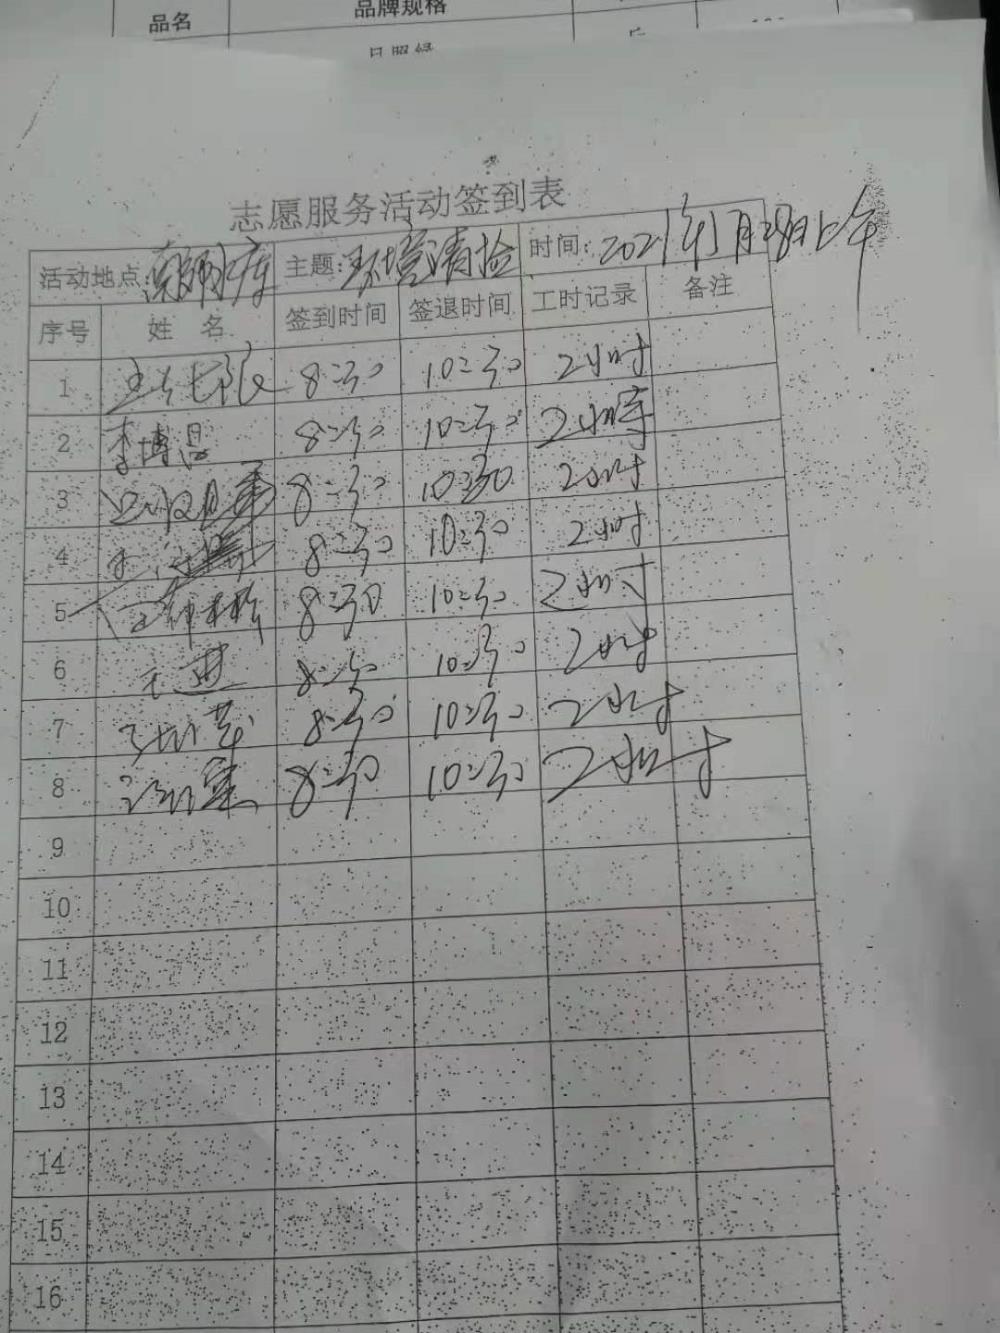 品名 品牌规格
志愿服务活动签到表
活动地点: 主题:环境清捡 时间:2021年1月28日上午
序号 姓名 签到时间 签退时间 工时记录 备注
1 8:30 10:30 2小时
2 李博昌 8:30 10:30 2小时
3 8:30 10:30 2小时
4 8:30 10:30 2小时
5 8:30 10:30 2小时
6 王进 8:30 10:30 2小时
7 8:30 10:30 2小时
8 8:30 10:30 2小时
9
10
11
12
13
14
15
16